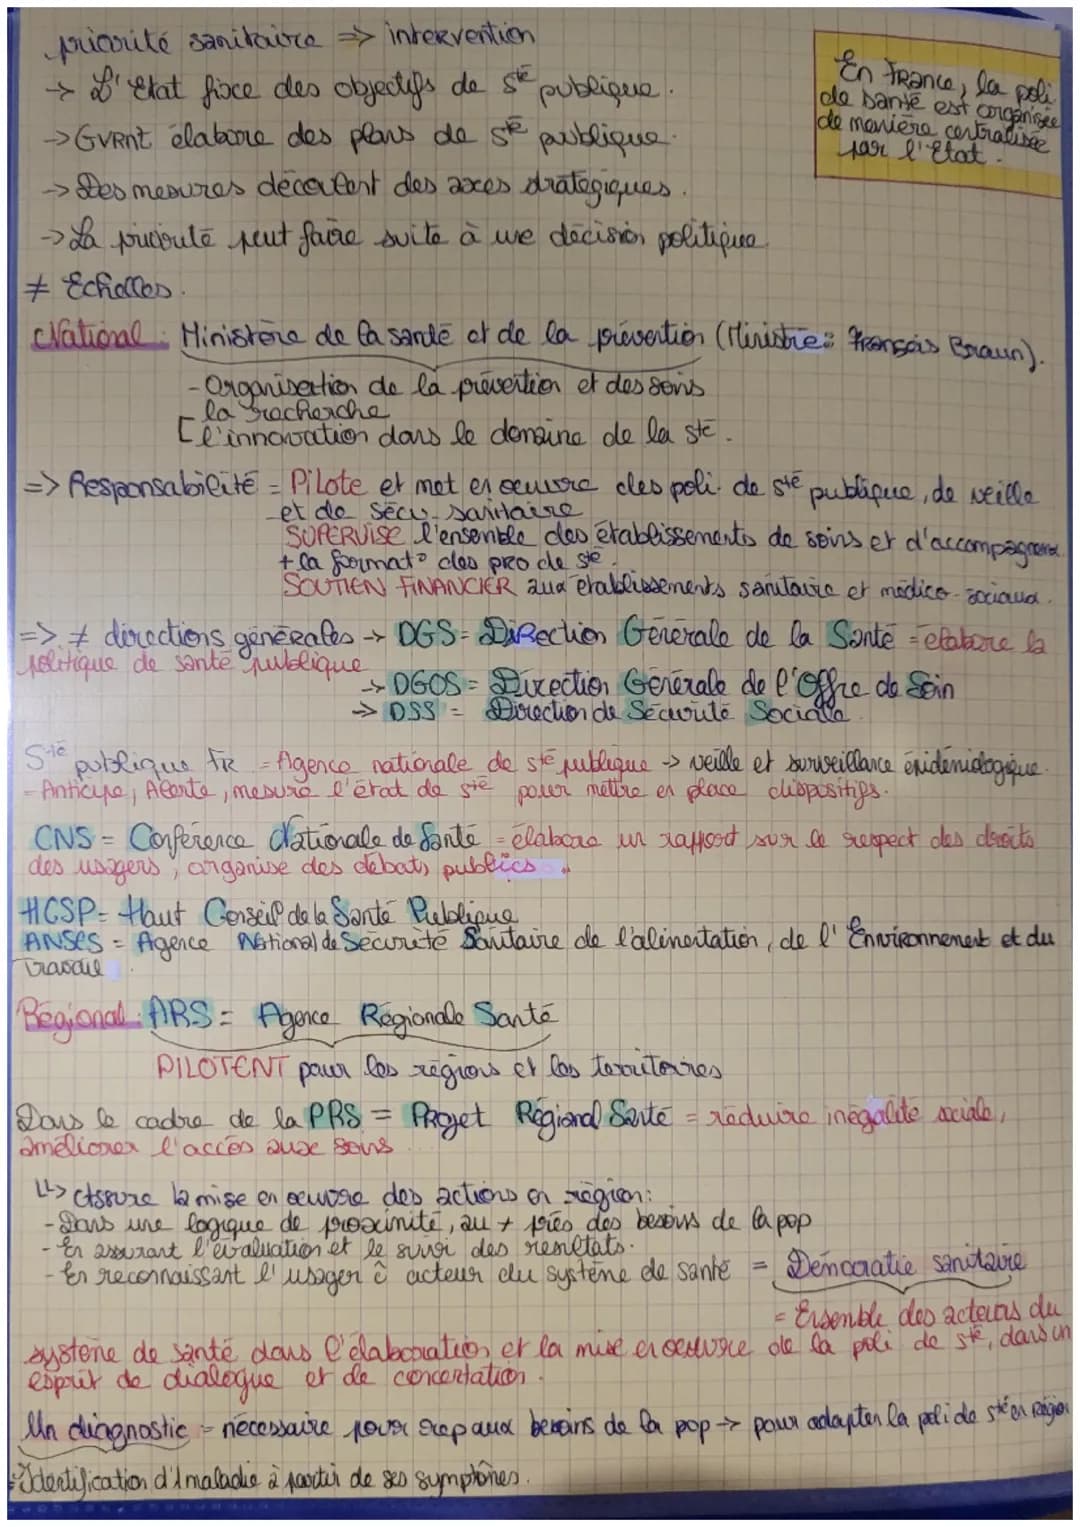 priorité sanitaire => intervention
-> L'Etat fixe des objectifs de sté publique.
-> GVRNT élabore des plans de sté publique.
-> Des mesures découlent des axes stratégiques.
-> La priorité peut faire suite à une décision politique.
En France, la poli.
de santé est organisée
de manière centralisée
par l'Etat.
≠ Echelles.
National : Ministère de la santé et de la prévention (Ministre : François Braun).
- Organisation de la prévention et des soins
la recherche
l'innovation dans le domaine de la sté.
=> Responsabilité = Pilote et met en oeuvre des poli. de sté publique, de veille
et de sécu. sanitaire
SUPERVISE l'ensemble des établissements de soins et d'accompagnement
+ la format° des pro de sté.
SOUTIEN FINANCIER aux établissements sanitaire et médico-sociaux.
=> ≠ directions générales -> DGS = Direction Générale de la Santé = élabore la
politique de santé publique
-> DGOS = Direction Générale de l'Offre de Soin
-> DSS = Direction de Sécurité Sociale
Sté publique FR = Agence nationale de sté publique -> veille et surveillance épidémiologique.
= Anticipe, Alerte, mesure l'état de sté pour mettre en place dispositifs.
CNS = Conférence Nationale de Santé = élabore un rapport sur le respect des droits
des usagers, organise des débats publics.
HCSP = Haut Conseil de la Santé Publique
ANSES = Agence National de Sécurité Sanitaire de l'alimentation, de l'Environnement et du
Travail
Régional : ARS = Agence Régionale Santé
PILOTENT pour les régions et les territoires
Dans le cadre de la PRS = Projet Régional Santé = réduire inégalité sociale,
améliorer l'accès aux soins
↳ Assure la mise en oeuvre des actions en région :
- Dans une logique de proximité, au + près des besoins de la pop
- En assurant l'évaluation et le suivi des résultats.
- En reconnaissant l'usager ĉ acteur du système de santé = Démocratie sanitaire
= Ensemble des acteurs du
système de santé dans l'élaboration et la mise en oeuvre de la poli de sté, dans un
esprit de dialogue et de concertation.
Un diagnostic = nécessaire pour rep aux besoins de la pop -> pour adapter la poli de sté en région
= Identification d'1 maladie à partir de ses symptômes.